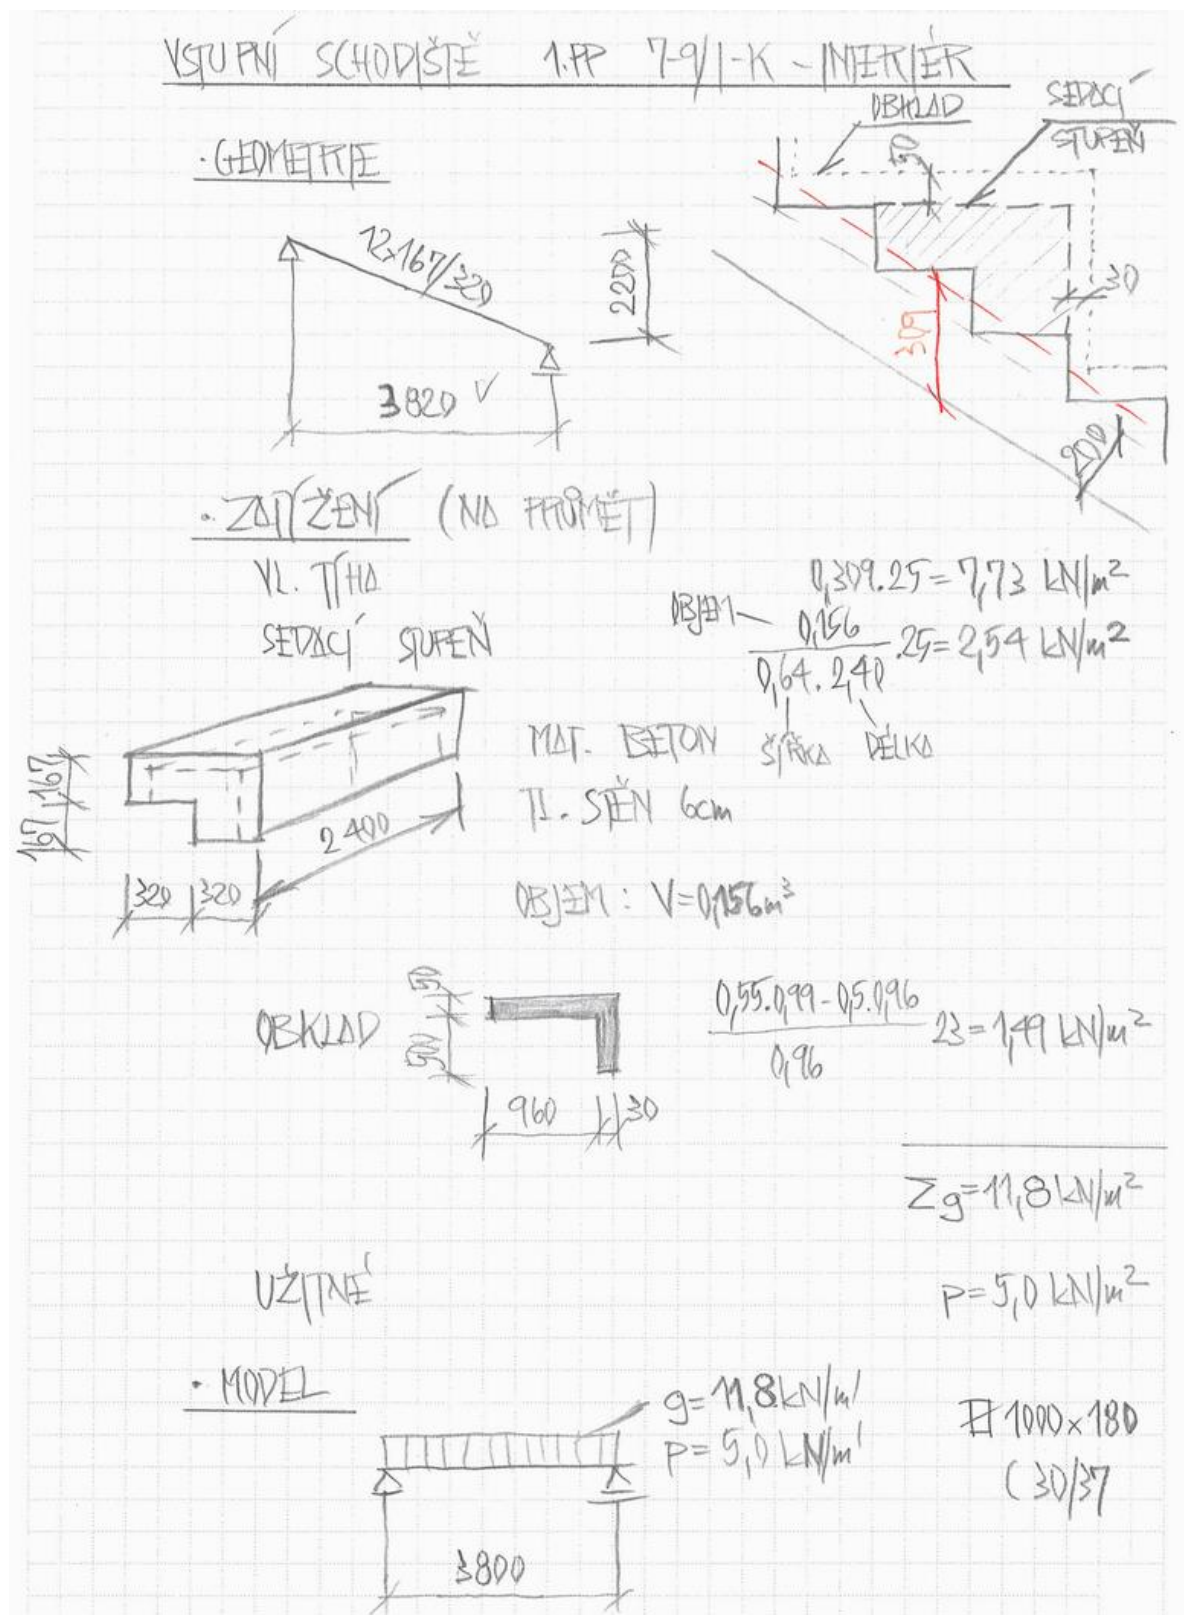 VSTUPNÍ SCHODIŠTĚ 1.PP 7-9/I-K - INTERIÉR
OBKLAD
SEDACÍ STUPEŇ
· GEOMETRIE
50
12x167/320
2200
3820 √
309
30
200
· ZATÍŽENÍ (NA PRŮMĚT)
VL. TÍHA 0,309.25=7,73 kN/m²
SEDACÍ STUPEŇ
OBJEM
0,156
0,64 . 2,40
.25=2,54 kN/m²
ŠÍŘKA DÉLKA
MAT. BETON
TL. STĚN 6cm
167 167
2400
320 320
OBJEM : V=0,156m³
OBKLAD
50
500
960 30
0,55.0,99-0,5.0,96
0,96
23=1,49 kN/m²
Σg=11,8 kN/m²
UŽITNÉ p=5,0 kN/m²
· MODEL
g=11,8 kN/m'
p=5,0 kN/m'
1000x180
C 30/37
3800